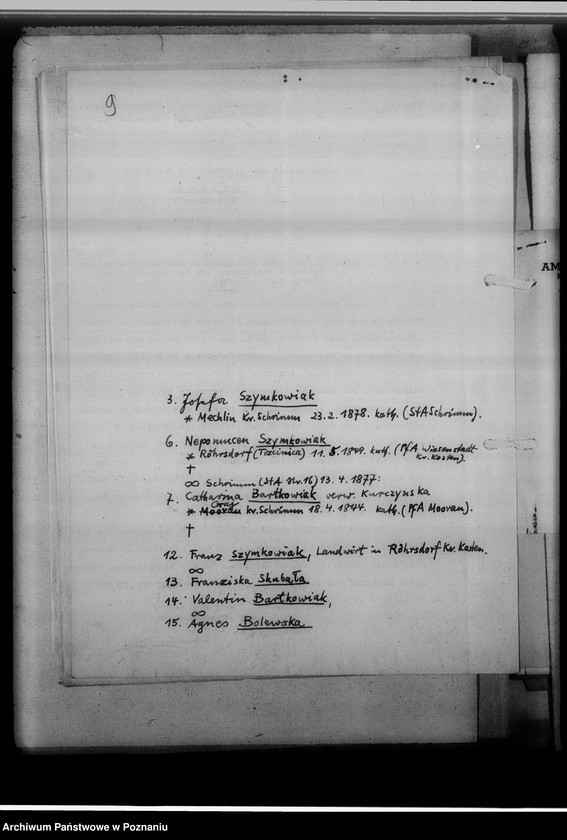 9
AM
3. Josefa Szymkowiak
* Mechlin Kr. Schrimm 23.2.1878. kath. (StA Schrimm).
6. Nepomucen Szymkowiak
* Röhrsdorf (Trzcinica) 11.5.1849. kath. (PfA Wiesenstadt
Kr. Kosten).
†
∞ Schrimm (StA Nr. 16) 13.4.1877:
7. Catharina Bartkowiak verw. Kurczynska
* Moorau Kr. Schrimm 18.4.1844. kath. (PfA Moorau).
†
12. Franz Szymkowiak, Landwirt in Röhrsdorf Kr. Kosten.
∞
13. Franziska Skubała
14. Valentin Bartkowiak,
∞
15. Agnes Bolewska
Archiwum Państwowe w Poznaniu